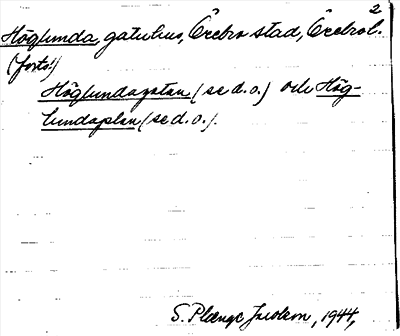 2
Höglunda, gatuhus, Örebro stad, Örebro l.
(forts!)
Höglundagatan (se d.o.) och Hög-
lundaplan (se d.o.).
S. Plænge 1944,